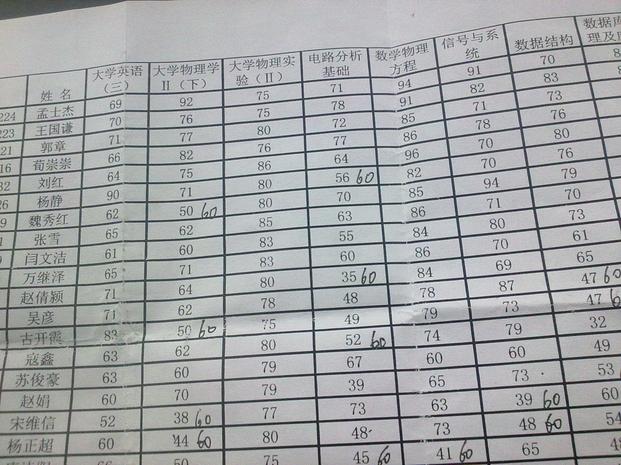 姓名 大学英语（三） 大学物理学II（下） 大学物理实验（II） 电路分析基础 数学物理方程 信号与系统 数据结构
224 孟士杰 69 92 75 71 94 91 70
223 王国谦 70 76 75 78 91 82 83
21 郭章 71 77 80 72 85 71 73
16 荀崇崇 66 82 76 77 86 78 76
32 刘红 64 75 86 64 96 70 80
26 杨静 90 71 80 56 60 82 70 76
9 魏秀红 62 50 60 80 70 85 94 79
张雪 65 62 85 63 86 71 80
闫文洁 61 60 83 55 84 80 73
万继泽 65 71 83 60 86 70 61
赵倩颖 71 64 80 35 60 84 69 65
吴彦 71 62 78 48 78 87 47 60
古开震 83 50 60 75 49 79 73 47
寇鑫 63 62 80 52 60 74 79 32
苏俊豪 63 60 79 67 60 60 49
赵娟 60 70 79 39 65 73 53
宋维信 52 38 60 77 73 63 39 60 60
杨正超 60 44 60 80 48 48 60 54
50 75 45 60 41 60 65 48